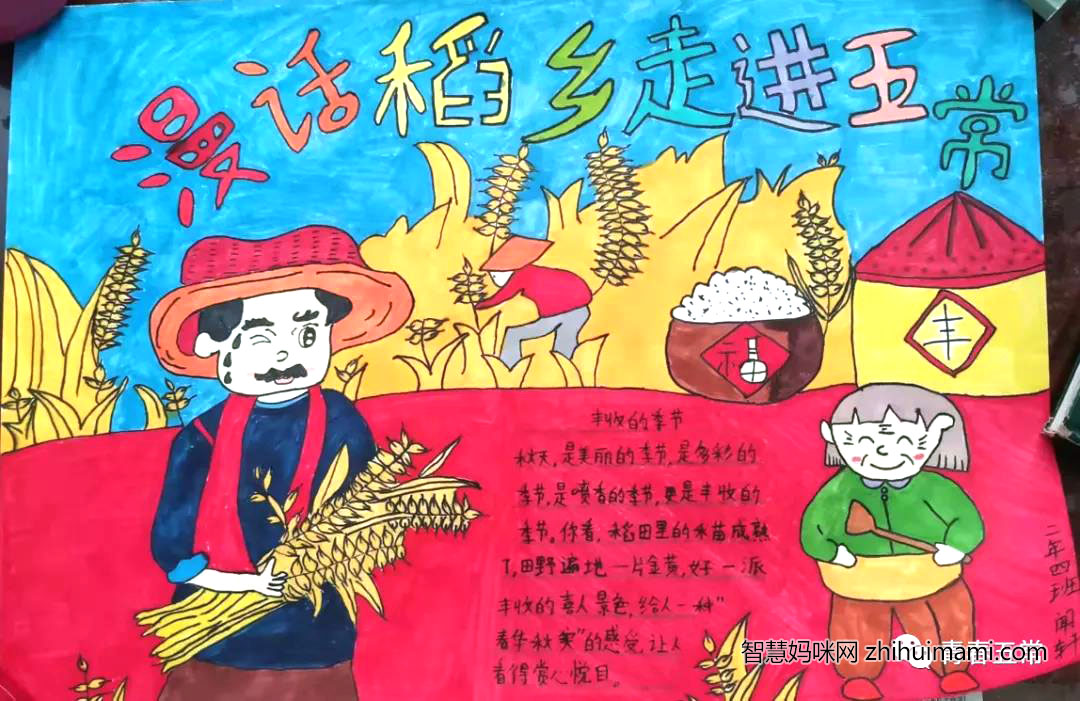 漫话稻乡走进五常
丰
福
丰收的季节
秋天,是美丽的季节,是多彩的
季节,是喷香的季节,更是丰收的
季节。你看,稻田里的禾苗成熟
了,田野遍地一片金黄,好一派
丰收的喜人景色,给人一种"
春华秋实"的感受,让人
看得赏心悦目。
二年四班 闻轩
智慧妈咪网 zhihuimami.com